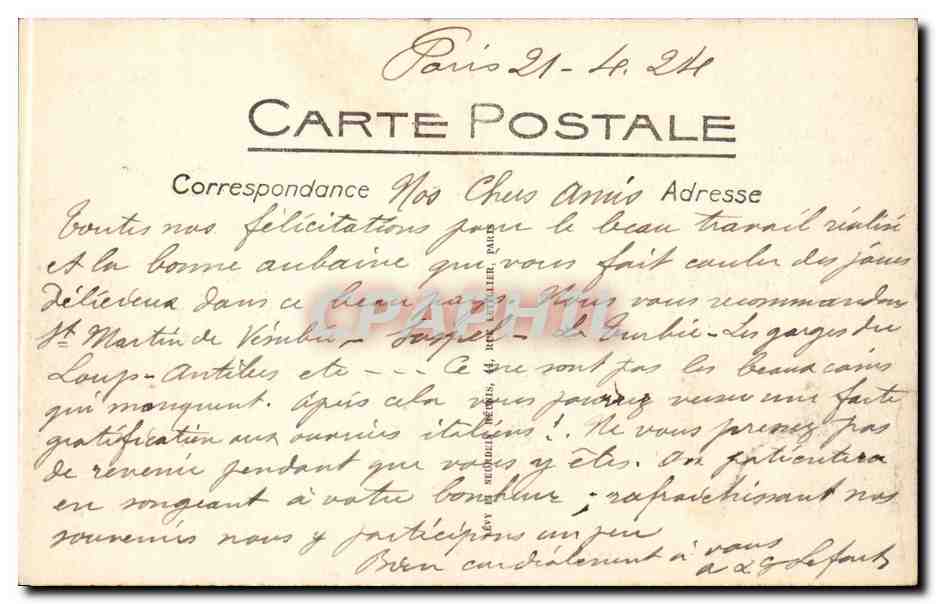 Paris 21-4.24
CARTE POSTALE
Correspondance Nos Chers Amis Adresse
Toutes nos félicitations pour le beau travail réalisé
et la bonne aubaine que vous fait couler des jours
délicieux dans ce beau pays. Nous vous recommandons
St Martin de Vésubie - Sospel - La Turbie - Les gorges du
Loup - Antibes etc - - - Ce ne sont pas les beaux coins
qui manquent. Après cela vous pourrez verser une forte
gratification aux ouvriers italiens! Ne vous pressez pas
de revenir pendant que vous y êtes. On patientera
en songeant à votre bonheur, rafraichissant nos
souvenirs nous y participons un peu
Bien cordialement à vous
Lefort
LÉVY ET NEURDEIN RÉUNIS, 44, RUE LETELLIER, PARIS
CPAPHIL